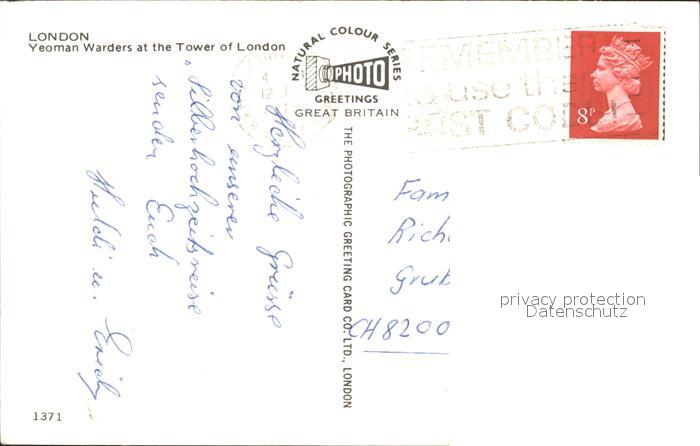 LONDON
Yeoman Warders at the Tower of London
NATURAL COLOUR SERIES
PHOTO
GREETINGS
GREAT BRITAIN
REMEMBER
to use the
POST CODE
8P
Herzliche Grüsse
von unserer
"Silberhochzeitsreise
senden Euch
Huldi u. Erich
THE PHOTOGRAPHIC GREETING CARD CO. LTD., LONDON
Fam
Rich
Grub
CH 8200
privacy protection
Datenschutz
1371